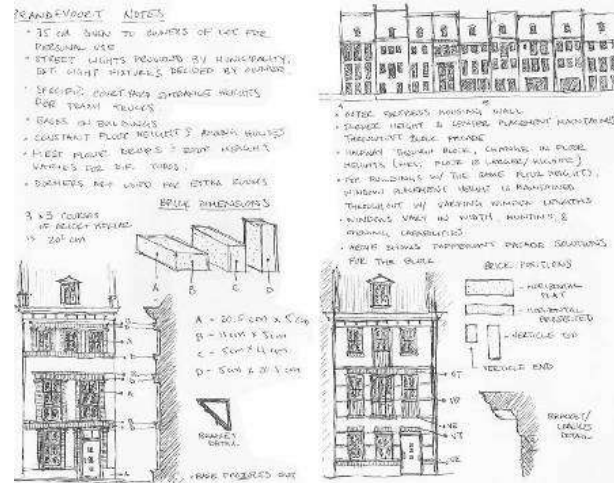 BRANDEVOORT NOTES
• 75 CM GIVEN TO OWNERS OF LOT FOR
PERSONAL USE
• STREET LIGHTS PROVIDED BY MUNICIPALITY,
EXT. LIGHT FIXTURES DECIDED BY OWNER.
• SPECIFIC COURTYARD ENTRANCE HEIGHTS
FOR TRUCKS
ON BUILDINGS
• CONSTANT FLOOR HEIGHTS AMONG HOUSES
• FIRST FLOOR ROOF HEIGHT
VARIES FOR DIF. TYPES.
• DORMERS ARE USED FOR EXTRA ROOMS
BRICK DIMENSIONS
3 × 3 COURSES
OF BRICK + MORTAR
IS 20 CM
A B C D
A = 20.5 CM × 5 CM
B = 11 CM × 5 CM
C = 5 CM × 11 CM
D = 5 CM × 20.5 CM
BRACKET
DETAIL
• BASE OUT
• OUTER FORTRESS HOUSING WALL
• HEIGHT & PLACEMENT MAINTAINED
THROUGHOUT BLOCK FACADE
• HALFWAY THROUGH BLOCK, CHANGE IN FLOOR
HEIGHTS ( FLOOR IS LARGER/HIGHER)
• FOR BUILDINGS W/ THE SAME FLOOR HEIGHTS,
WINDOW PLACEMENT HEIGHT IS MAINTAINED
THROUGHOUT W/ VARYING WINDOW LENGTHS
• WINDOWS VARY IN WIDTH, MUNTINS, &
OPENING CAPABILITIES
• ABOVE SHOWS DIFFERENT FACADE SOLUTIONS
FOR THE BLOCK
BRICK POSITIONS
- HORIZONTAL
FLAT
- HORIZONTAL
- VERTICLE TOP
VERTICLE END
VT
VE
VT
BRACKET/
DETAIL